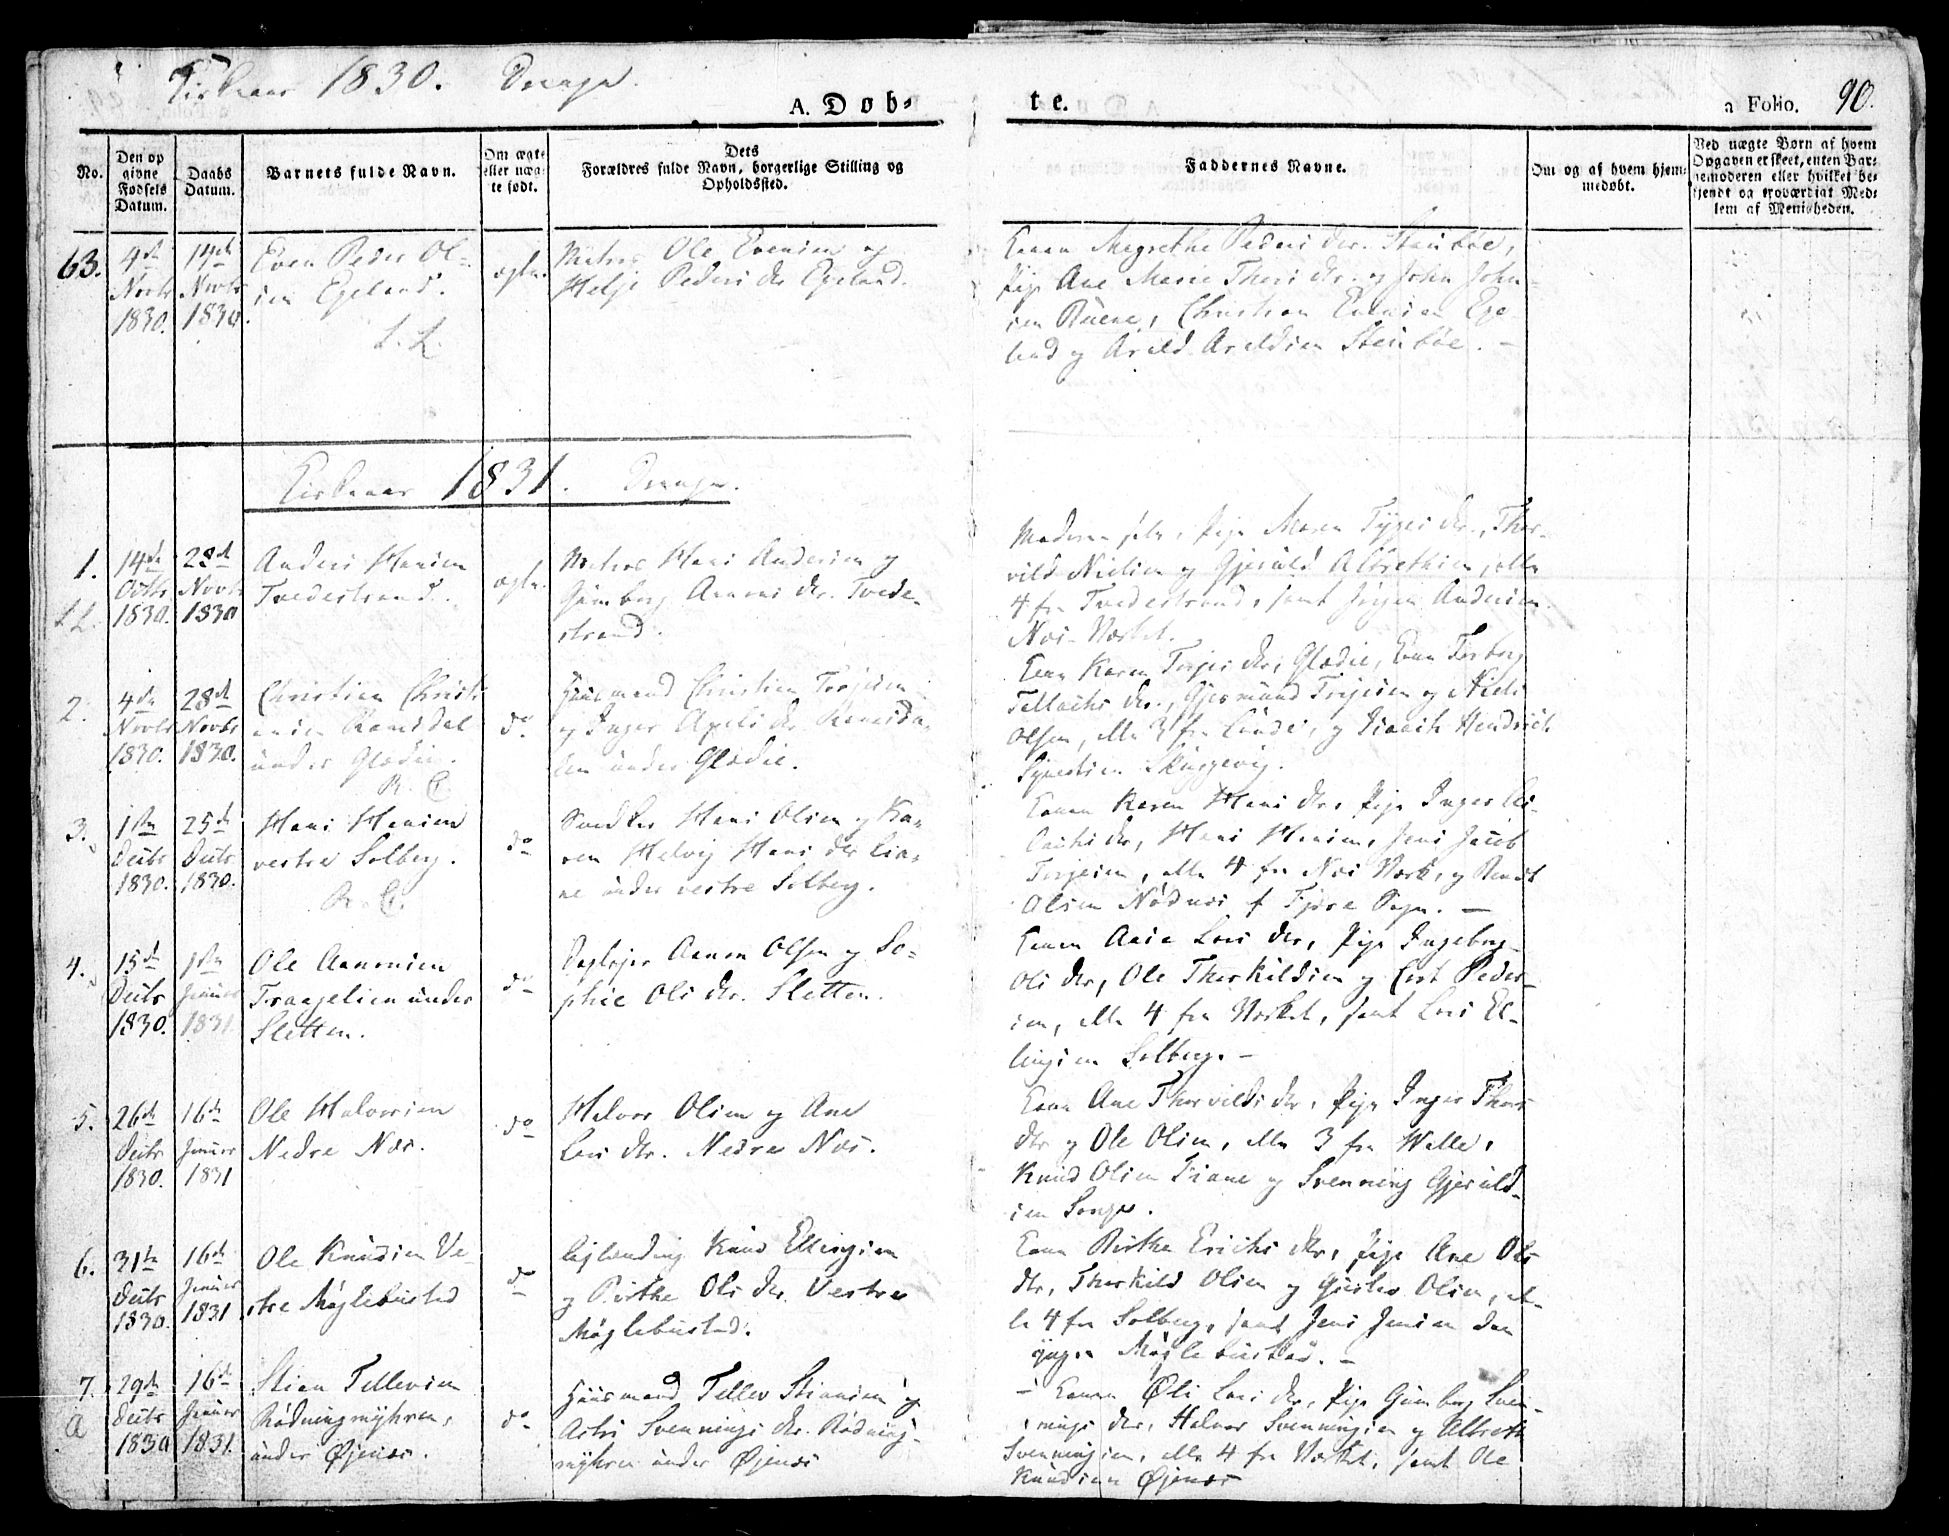 Kirkeaar 1830. Drenge.
A. Døb- te.
a Folio. 90.
No.
Den op
givne
Fødsels
Datum.
Daabs
Datum.
Barnets fulde Navn.
Om ægte
eller uæg-
te født.
Dets
Forældres fulde Navn, borgerlige Stilling og
Opholdssted.
Faddernes Navne.
Om og af hvem hjem-
medøbt.
Ved uægte Børn af hvem
Opgaven er skeet, enten Bar-
nemoderen eller hvilket be-
kjendt og troværdigt Med-
lem af Menigheden.
63.
4de
Novbr
1830.
14de
Novbr
1830.
Even Peder Ol-
sen Egeland.
ægte.
Matros Ole Evensen og
Peders dr Egeland.
Konen Megrethe Peders dtr. Steinbøe,
Pige Ane Marie dtr. og John John-
sen Christian Evensen Ege-
land og Arild Arildsen Steinbøe. –
Kirkeaar 1831. Drenge.
1.
14de
Octbr
1830.
28de
Novbr
1830
Anders Hansen
Tvedestrand.
ægte.
Matros Hans Andersen og
Gunborg Aanons dtr. Tvede-
strand.
Moderen selv, Pige Maren dtr., Thor-
vild Nielsen og Gjeruld Albrethsen, alle
4 fra Tvedestrand, samt Jørgen Andersen
Næs-Værket.
2.
4de
Novbr
1830.
28de
Novbr
1830.
Christian Christi-
ansen Ramsdal
under Glødie.
R. C.
do
Huusmand Christian Terjesen
og Inger Axels dtr Ramsda-
len under Glødie.
Konen Karen Terjes dtr, Glødie, Kone Torborg
Tellachs dtr., Gjermund Terjesen og Niels
Olsen, alle 3 fra Lunde, og Isaach Hendrich
3.
1ste
Decbr
1830.
25de
Decbr
1830.
Hans Hansen
vestre Solberg.
R. C.
do
Hans Olsen og Ka-
ren Helvig Hans dtr
ne under vestre Solberg.
Konen Karen Hans dtr, Pige Inger
dtr, Hans Hansen, Jens Jacob
Terjesen, alle 4 fra Næs Værk, og Bendt
Olsen Nødnæs af Fjære Sogn. –
4.
15de
Decbr
1830.
1ste
Januar
1831.
Ole Aanonsen
under
Sletten.
do
Aanon Olsen og So-
phie Ols dtr. Sletten.
Konen Aase Lars dtr, Pige Ingeborg
Ols dtr, Ole Therkildsen og Peder-
sen, alle 4 fra Værket, samt Lars El-
lingsen Solberg. –
5.
26de
Decbr
1830.
16de
Januar
1831
Ole Halvorsen
Nedre Næs.
do
Halvor Olsen og Ane
Lars dtr. Nedre Næs.
Kone Ane Thorvilds dtr, Pige Inger Thors
dtr og Ole Olsen, alle 3 fra Walle,
Knud Olsen og Svenning Gjeruld-
sen Songe.
6.
31te
Decbr
1830.
16de
Januar
1831.
Ole Knudsen Ve-
stre Møglebustad
do
Leilænding Knud Ellingsen
og Birthe Ols dtr. Vestre
Møglebustad.
Kone Birthe Erichs dtr, Pige Ane Ols
dtr, Therkild Olsen og Gustav Olsen, al-
le 4 fra Solberg, samt Jens Jensen den
yngre Møglebustad. –
7.
a
29de
Decbr
1830
16de
Januar
1831.
Stian Tellevsen
Rødningmyhren,
under Øjenæs.
do
Huusmand Tellev Stiansen og
Svennings dtr. Rødning-
myhren under Øjenæs
– Konen Lars dtr, Pige Gunborg Sven-
nings dtr, Halvor Svenningsen og Albreth
Svenningsen, alle 4 fra Værket, samt Ole
Knudsen Øjenæs